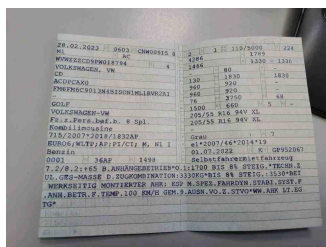 28.02.2023 0603 CNW00015 8
M1 AC
WVWZZZCD9PW018794 4
VOLKSWAGEN, VW
CD
ACDPCAX0
GOLF
VOLKSWAGEN-VW
Fz.z.Pers.bef.b. 8 Spl.
Kombilimousine
715/2007*2018/1832AP
EURO6;WLTP;AP;PI/CI; M, N1 I
Benzin
0001 36AP 1498
2 1 110/5000 224
4286 1789
1466 1330 - 1330
- 80 -
130 1830 - 1830
960 920 -
960 920 -
76 3750 68
1500 660 5 -
205/55 R16 94V XL
205/55 R16 94V XL
Grau 7
e1*2007/46*2014*19
01.07.2022 K OP952067
Selbstfahrermietfahrzeug
7.2/8.2:+65 B.ANHÄNGEBETRIEB*O.1:1700 BIS 8% STEIG.*TECHN.Z
UL.GES-MASSE D.ZUGKOMBINATION:3330KG*BIS 8% STEIG.:3530*BEI
WERKSEITIG MONTIERTER AHK: ESP M.SPEZ.FAHRDYN.STABI.SYST.F
.ANH.BETR.F.TEMP.100 KM/H GEM.9.AUSN.VO.Z.STVO*WW.AHK LT.EG
TG*